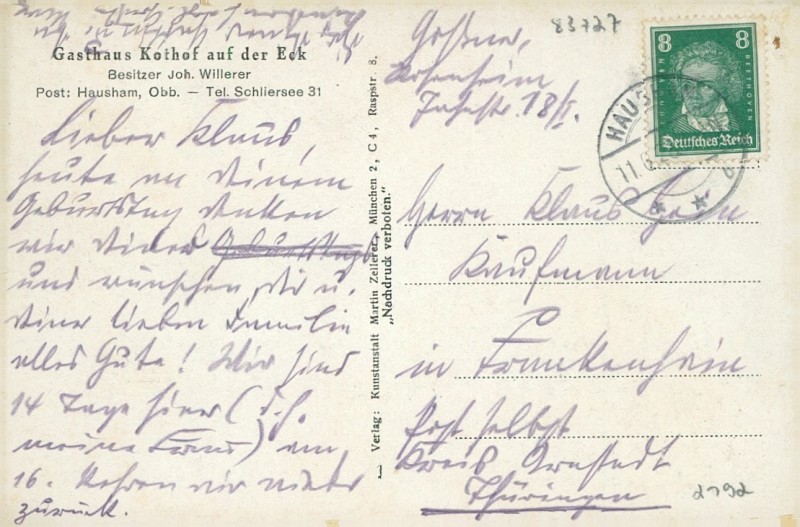 Gasthaus Kothof auf der Eck
Besitzer Joh. Willerer
Post: Hausham, Obb. — Tel. Schliersee 31
Lieber Klaus,
heute an Deinem
Geburtstag denken
wir Deines Geburtstags
und wünschen, Dir u.
Deiner lieben Familie
alles Gute! Wir sind
14 Tage hier (d. h.
meine Frau) am
16. kehren wir wieder
zurück.
Verlag: Kunstanstalt Martin Zellerer, München 2, C 4, Raspstr 8.
„Nachdruck verboten."
83727
Goßner,
Rosenheim
18/I.
8 8
BEETHOVEN
Deutsches Reich
HAUS
11.
Herrn Klaus Hein
Kaufmann
in Frankenhain
Post selbst
Kreis Arnstadt
Thüringen
2792